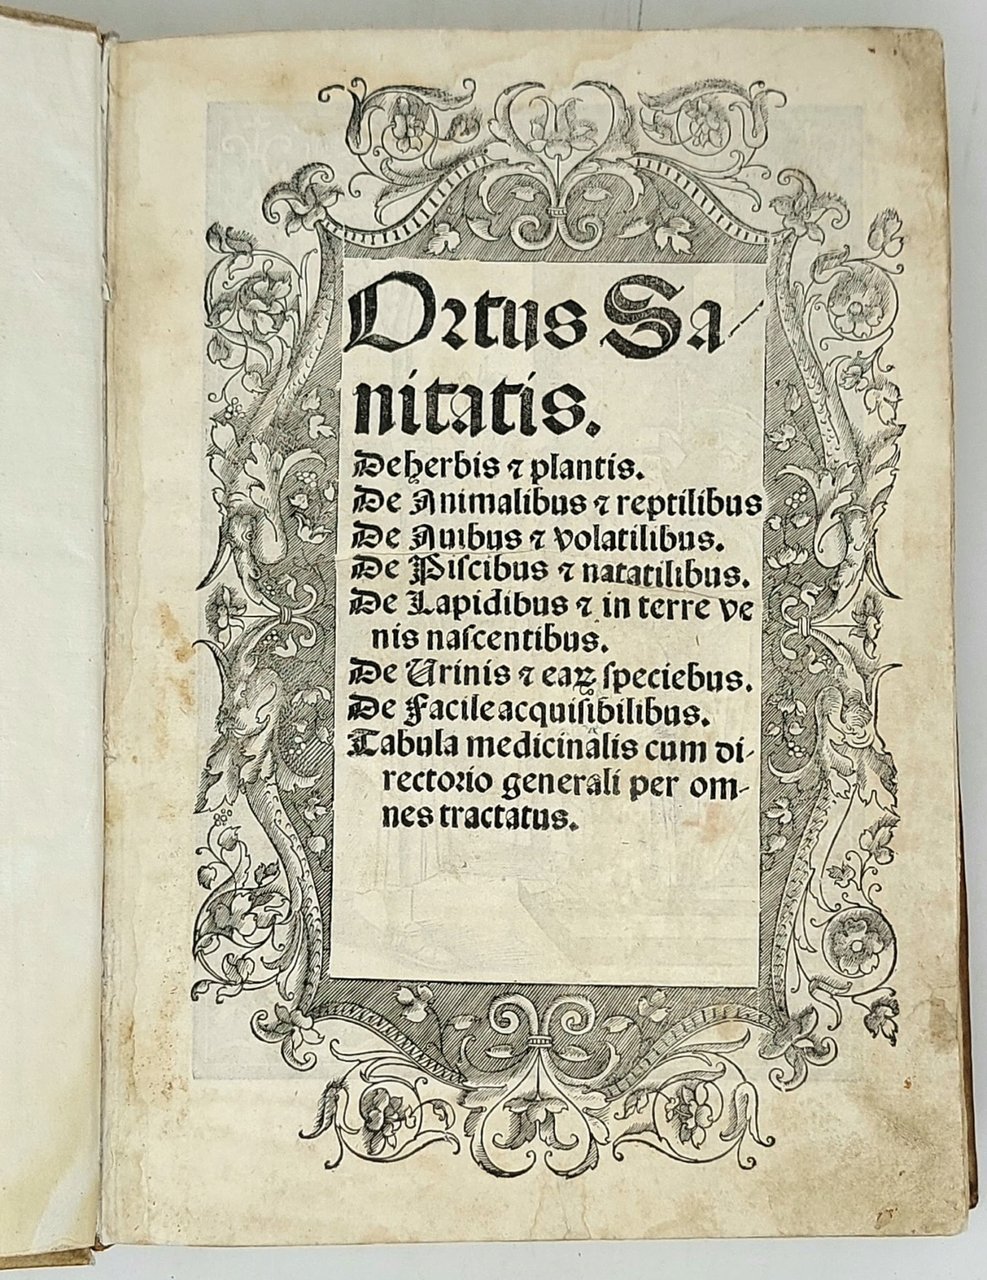 Ortus Sa-
nitatis.
De herbis ⁊ plantis.
De Animalibus ⁊ reptilibus
De Auibus ⁊ volatilibus.
De Piſcibus ⁊ natatilibus.
De Lapidibus ⁊ in terre ve
nis naſcentibus.
De Urinis ⁊ eaꝝ ſpeciebus.
De Facile acquiſibilibus.
Tabula medicinalis cum di-
rectorio generali per om-
nes tractatus.